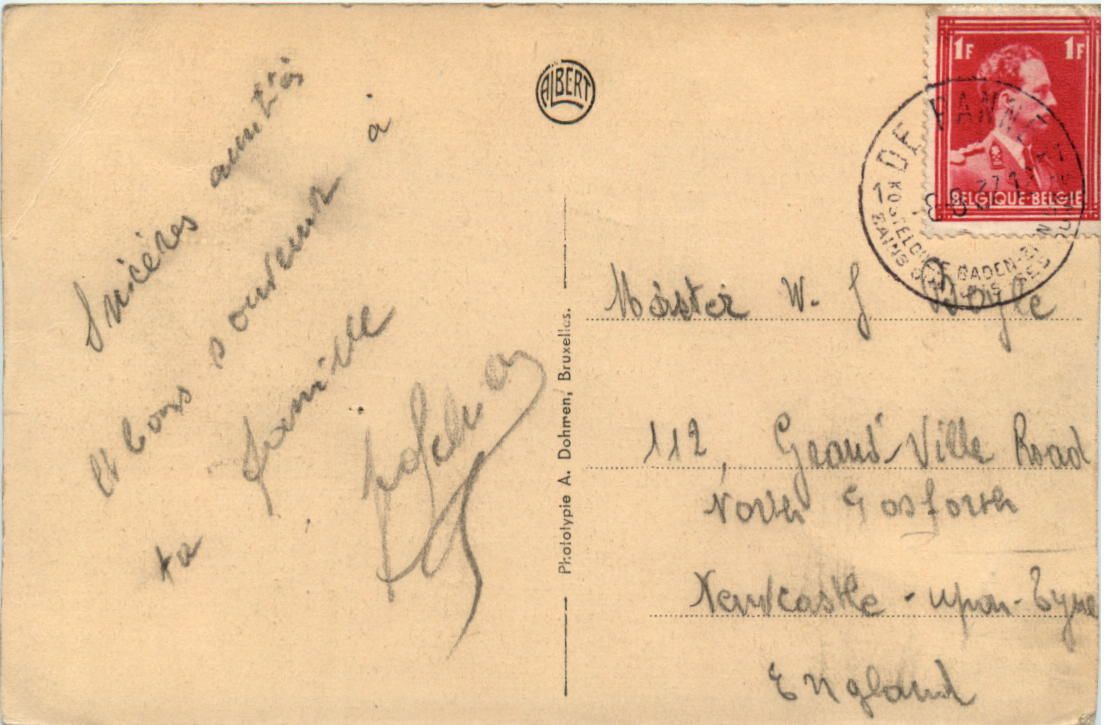 Sincères amitiés
et bons souvenir à
ta famille
ALBERT
Phototypie A. Dohmen, Bruxelles.
1F 1F
BELGIQUE-BELGIE
1 DE PANNE
BADEN
BAINS
Mäister W. J Doyle
112, Grand Ville Road
North Gosforth
Newcastle-upon-Tyne
England